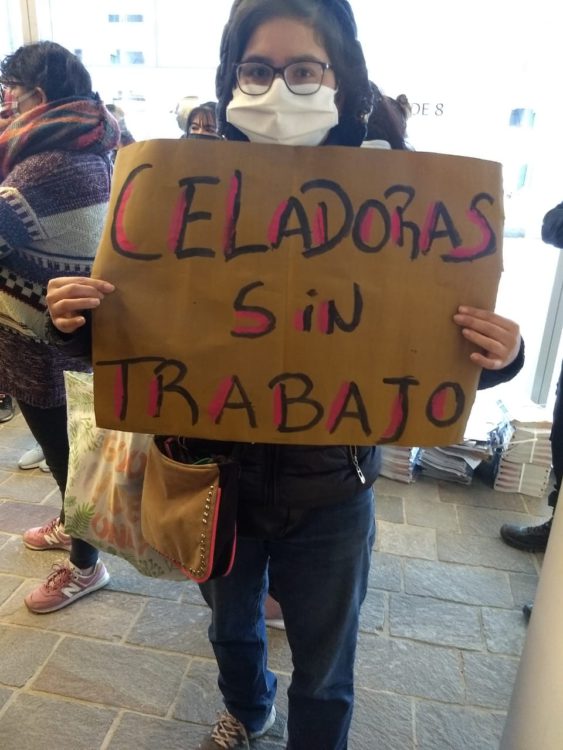 CELADORAS
SiN
TRABAJO
DE 8